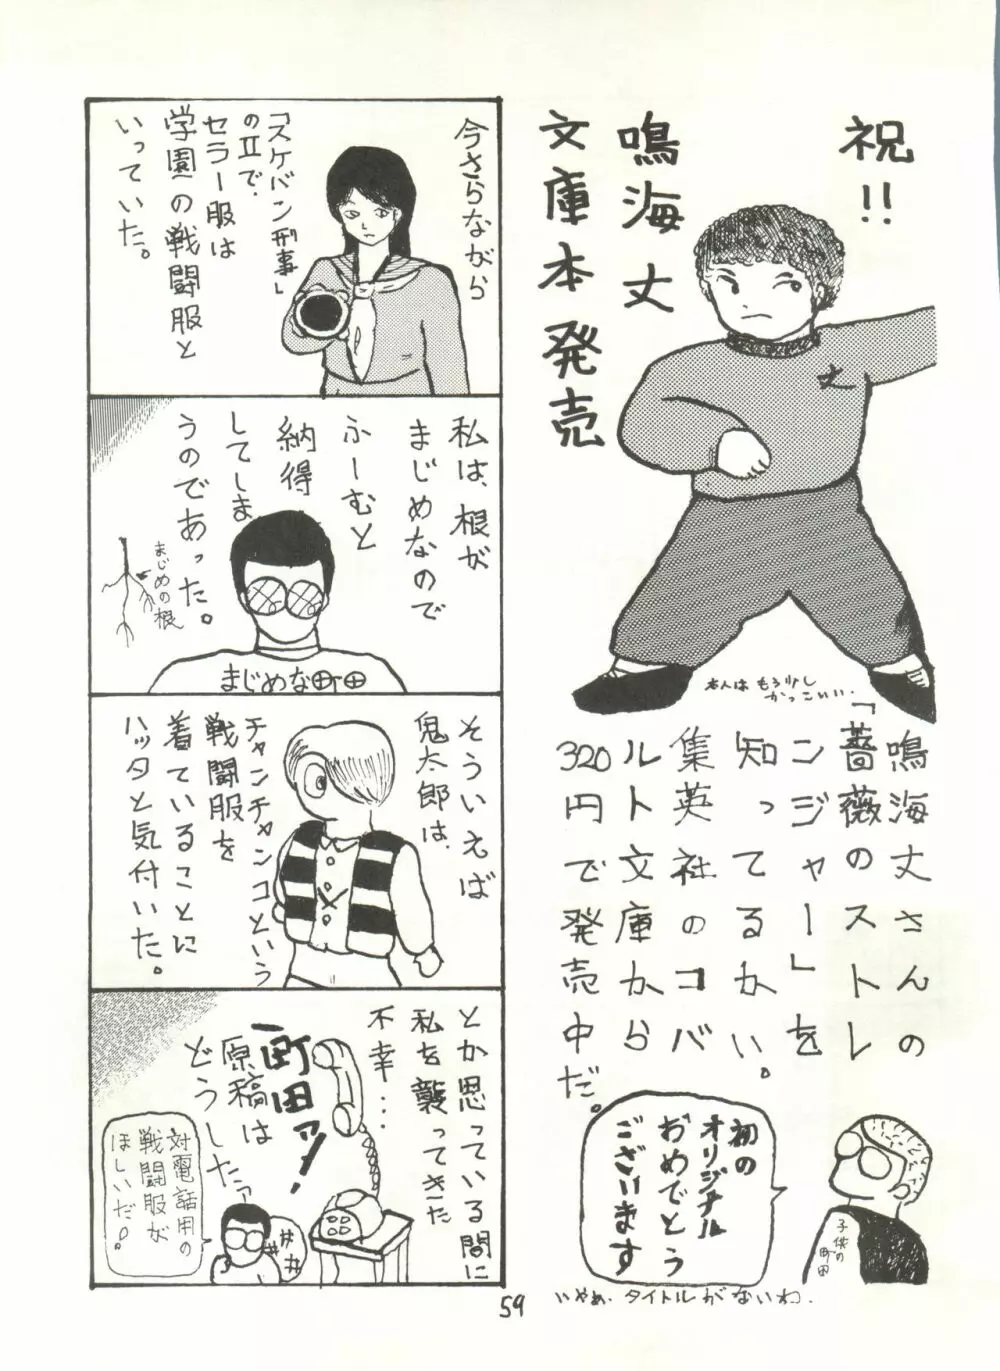 祝!!
鳴海丈
文庫本発売
丈
本人はもう少し
かっこいい.
鳴海丈さんの
「薔薇のストレ
ンジャー」を
知ってるかい。
集英社のコバ
ルト文庫から
320円で発売中だ。
初の
オリジナル
おめでとう
ございます
子供の
町田
いやぁ.タイトルがないわ.
今さらながら
「スケバン刑事」
のⅡで、
セーラー服は
学園の戦闘服と
いっていた。
私は、根が
まじめなので
ふーむと
納得
してしま
うのであった。
まじめの根
まじめな町田
そういえば
鬼太郎は、
チャンチャンコという
戦闘服を
着ていることに
ハッタと気付いた。
とか思っている間に
私を襲ってきた
不幸…
町田ァ!
原稿は
どうしたァ
対電話用の
戦闘服が
ほしいだ。
59